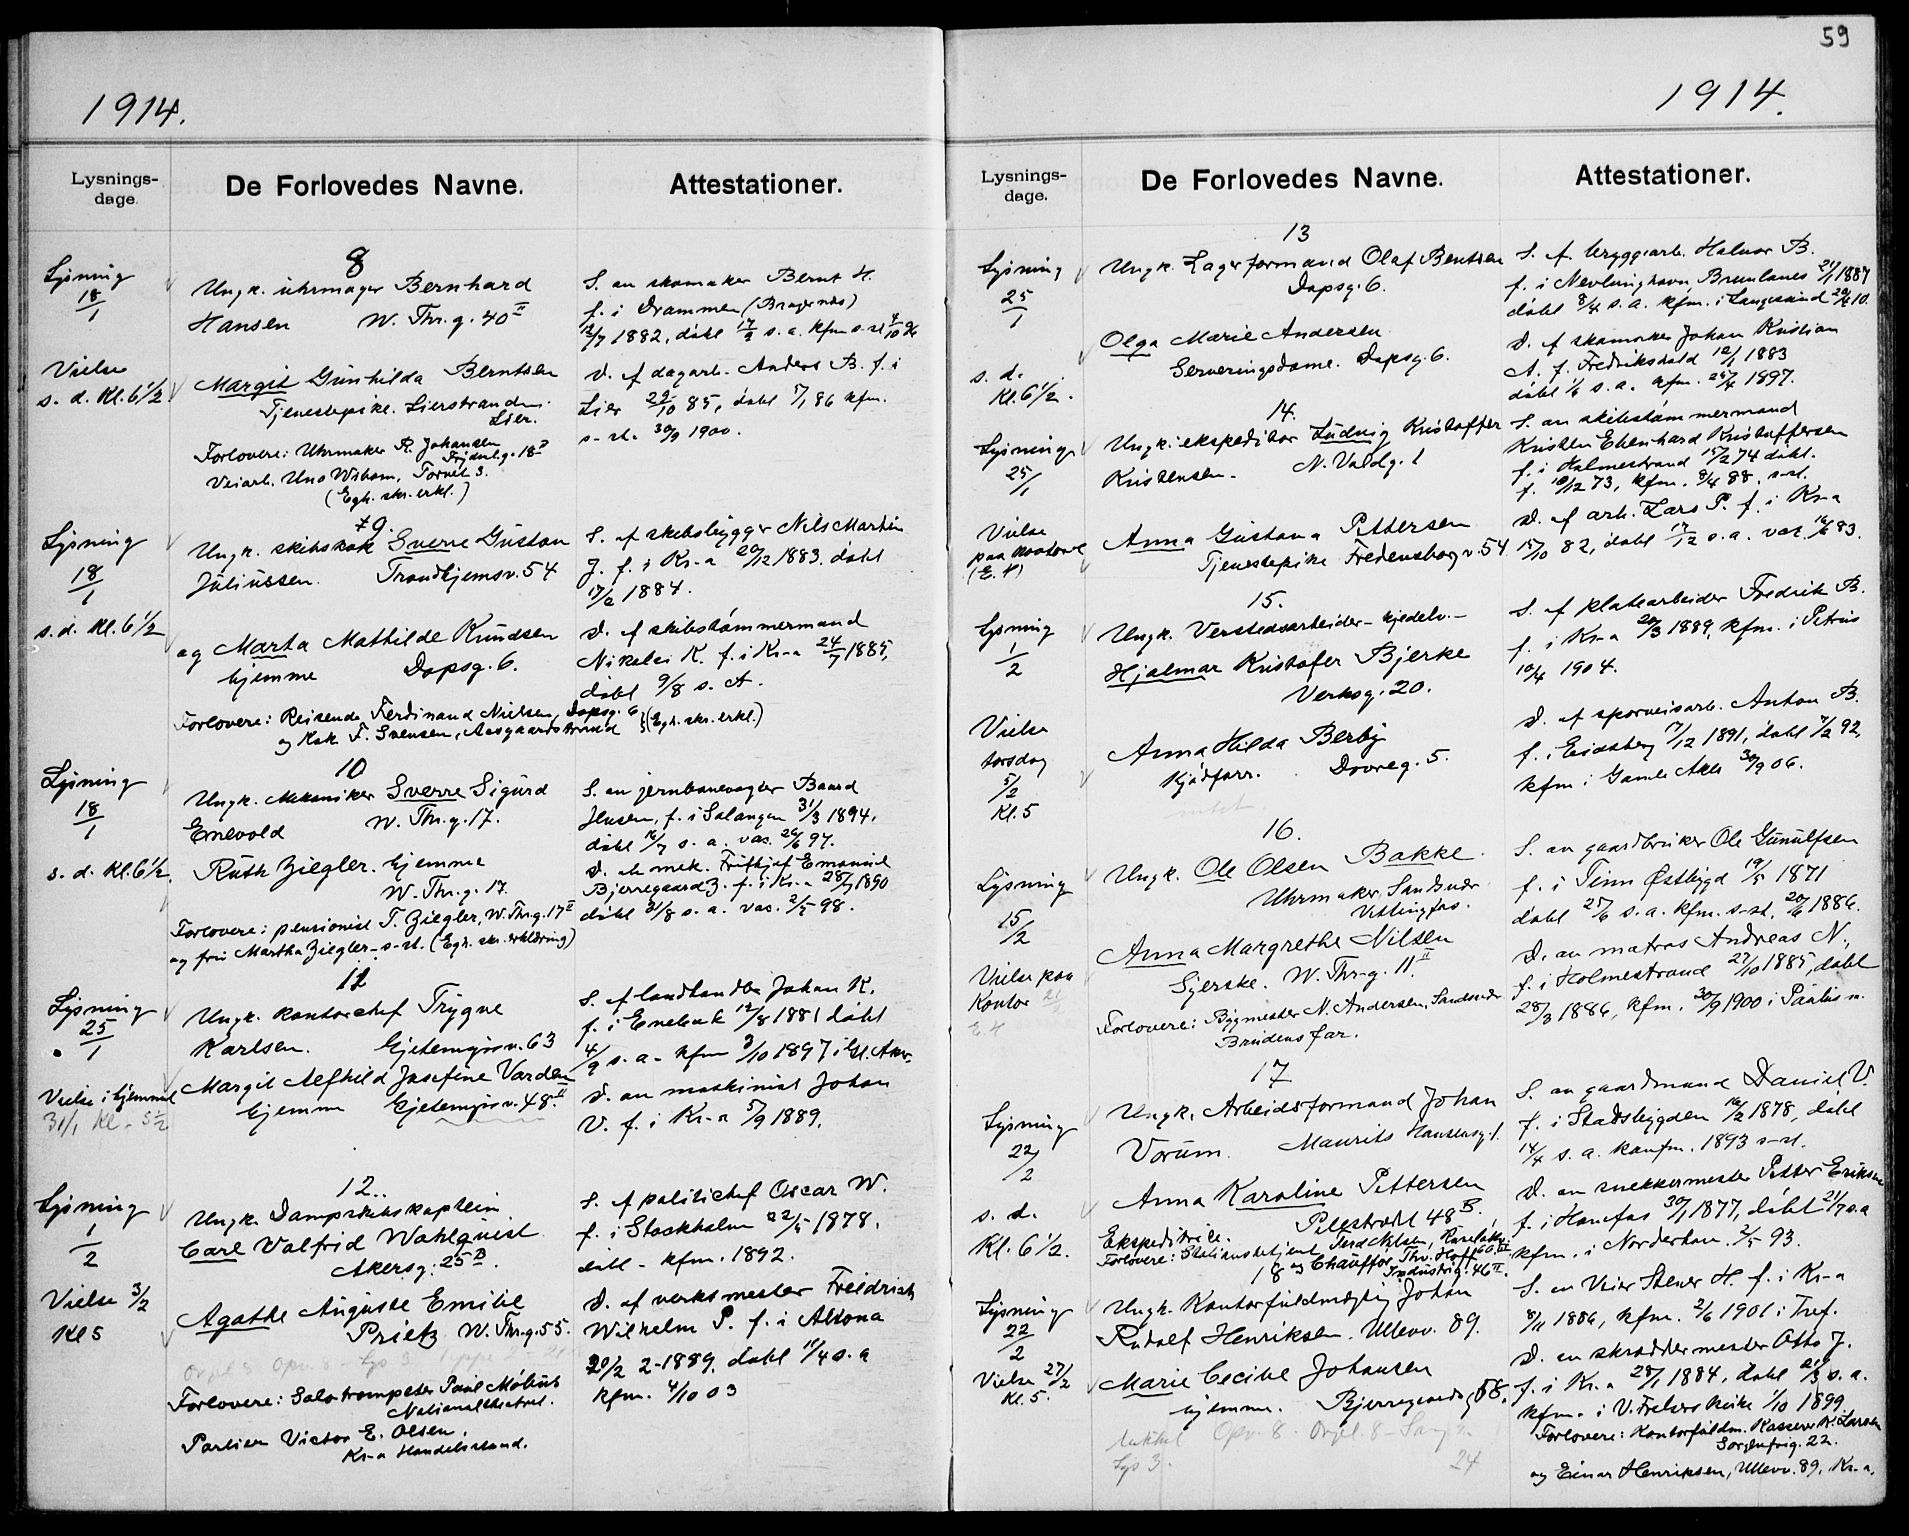 59
1914.
Lysnings-
dage.
De Forlovedes Navne.
Attestationer.
Lysning
18/1
Vielse
s. d. Kl. 6 1/2
8
Ungk. uhrmager Bernhard
Hansen W. Thr. g. 40 II
Margit Gunhilda Berntsen
Tjenestepike. Lierstranden.
Lier.
Forlovere: Uhrmaker R. Johansen
18 I
Veiarb. Uno Wibom, Torvet 3.
(Egh. skr. erkl.)
S. av skomaker Bernt H.
f. i Drammen (Bragernes)
12/7 1882, døbt 17/9 s. a. kfm s. st
D. af dagarb. Anders B. f. i
Lier 29/10 85, døbt 7/1 86 kfm.
s-st. 30/9 1900.
Lysning
18/1
s. d. Kl. 6 1/2
9.
Ungk. skibskok Sverre Gustav
Juliussen. Trondhjemsv. 54
og Marta Mathilde Knudsen
hjemme Dapsg. 6.
Forlovere: Reisende Ferdinand Nielsen, Dapsg. 6
og Kok F. Svensen, Aasgaardstrand } (Egh. skr. erkl.)
S. af skibsbygger Nils Martin
J. f. i Kr-a 20/12 1883, døbt
17/2 1884.
D. af skibstømmermand
Nikolai K. f. i Kr-a 24/7 1885,
døbt 9/8 s. A.
Lysning
18/1
s. d. Kl. 6 1/2
10
Ungk. Mekaniker Sverre Sigurd
Enevold W. Thr. g. 17.
Ruth Ziegler. hjemme
W. Thr. g. 17.
Forlovere: pensionist T. Ziegler, W. Thr. g. 17 II
og fru Martha Ziegler - s-st. (Egh. skr. erklæring)
S. av jernbanevogter Baard
Jensen, f. i Salangen 31/3 1894,
døbt 16/7 s. a. vac. 26/6 97.
D. av mek. Frithjof Emanuel
Bjerregaard Z. f. i Kr-a 28/7 1890
døbt 31/8 s. a. vac. 2/5 98.
Lysning
25/1
Vielse i hjemmet
31/1 Kl - 5 1/2
11
Ungk. kontorchef Trygve
Karlsen. Gjetemyrsv. 63
Margit Alfhild Josefine Varden
hjemme Gjetemyrsv. 48 II
S. af landhandler Johan K.
f. i Enebak 12/8 1881 døbt
4/9 s. a - kfm 3/10 1897 i Gl. Aker.
D. av maskinist Johan
V. f. i Kr-a 5/9 1889.
Lysning
1/2
Vielse 3/2
Kl 5
12.
Ungk. Dampskibskaptein
Carl Valfrid Wahlquist
Akersg. 25 B.
Agathe Auguste Emilie
Prietz W. Thr. g. 55.
Forlovere: Solotrompeter Paul Møbius
Nationaltheatret.
Portier Victor E. Olsen.
Kr-a Handelsstand.
S. af politichef Oscar W.
f. i Stockholm 22/5 1878.
døbt - kfm. 1892.
D. af verksmester Freidrich
Wilhelm P. f. i Altona
2-1889. døbt 11/4 s. a
kfm. 4/10 03
1914.
Lysnings-
dage.
De Forlovedes Navne.
Attestationer.
Lysning
25/1
s. d.
Kl. 6 1/2.
13
Ungk. Lagerformand Olaf Bentsen
Dapsg. 6.
Olga Marie Andersen
Serveringsdame. Dapsg. 6.
S. af bryggearb. Halvor B.
f. i Nevlunghavn, Brunlanes 21/1 1887
døbt 8/4 s. a. kfm. i Langesund
D. af skomaker Johan Kristian
A. f. Fredrikshald 12/1 1883
døbt 1/6 s. a. kfm. 25/4 1897.
Lysning
25/1
Vielse
paa kontoret
(E. H)
14.
Ungk. ekspeditør Ludvig Kristoffer
Kristensen. N. Valdg. 1
Anna Gustava Pettersen
Tjenestepike Fredensborgv. 54
S. av skibstømmermand
Kristen Ebenhard Kristoffersen
f. i Holmestrand 15/2 74 døbt.
f. 10/12 73, kfm. 8/4 88, s-st.
D. af arb. Lars P. f. i Kr-a
15/10 82, døbt 17/12 s. a. vac. 16/6 83.
Lysning
1/2
Vielse
torsdag
5/2
Kl. 5
15.
Ungk. Verstedsarbeider - kjedelv. -
Hjalmar Kristofer Bjerke
Verksg. 20.
Anna Hilda Berby
Kjødforr. Dovreg. 5.
S. af platearbeider Fredrik B.
f. i Kr-a 20/3 1889, kfm. i Petrus
10/4 1904.
D. af sporveisarb. Anton B.
f. i Eidsberg 17/12 1891, døbt 7/2 92,
kfm i Gamle Aker 30/9 06.
Lysning
15/2
Vielse paa
Kontor
E. H
16.
Ungk. Ole Olsen Bakke.
Uhrmaker, Sandsvær
Vittingfos.
Anna Margrethe Nilsen
Syerske. W. Thr-g. 11 II
Forlovere: Bygmester N. Andersen, Sandsvær
Brudens far.
S. av gaardbruker Ole Gunulfsen
f. i Tinn Østbygd 19/5 1871
døbt 25/6 s. a. kfm. s-st. 20/6 1886.
D. av matros Andreas N.,
f. i Holmestrand 27/10 1885, døbt
28/3 1886, kfm. 30/9 1900 i Paulus m.
Lysning
22/2
s. d.
Kl. 6 1/2.
17
Ungk. Arbeidsformand Johan
Vorum. Maurits Hansensg. 1.
Anna Karoline Pettersen
Ekspeditrice. Pilestræt 48 B.
Forlovere: Stationsbetjent
og Chauffør Thv. Hoff
Industrig. 46 II.
S. av gaardmand Daniel V.
f. i Stadsbygden 16/2 1878, døbt
14/4 s. a. konfm. 1893 s-st.
D. av snekkermester Petter Eriksen
f. i Hønefos 30/1 1877, døbt 21/7 s. a
kfm. i Norderhov. 2/5 93.
Lysning
22/2
Vielse 27/2
Kl. 5.
18
Ungk. Kontorfuldmægtig Johan
Rudolf Henriksen. Ullevv. 89.
Marie Cecilie Johansen
hjemme. Bjerregaardsg. 58.
Opv. 8. Orgel. 8 - Sang
Lys 3. 24
S. av Veier Stener H. f. i Kr-a
8/11 1886, kfm. 2/6 1901 i Tref.
D. av skræddermester Otto J.
f. i Kr. a 28/1 1884, døbt 21/3 s. a.
kfm. i V. Frelsers kirke 1/10 1899
Forlovere: Kontorfuldm. Kasserer K. Larsen
Sorgenfrig. 22.
og Einar Henriksen, Ullevv. 89, Kr-a.